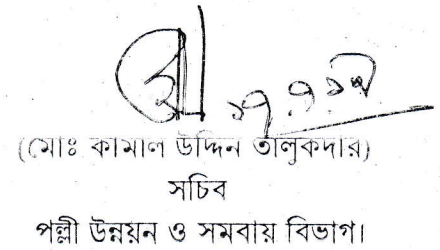 (মোঃ কামাল উদ্দিন তালুকদার)
সচিব
পল্লী উন্নয়ন ও সমবায় বিভাগ।